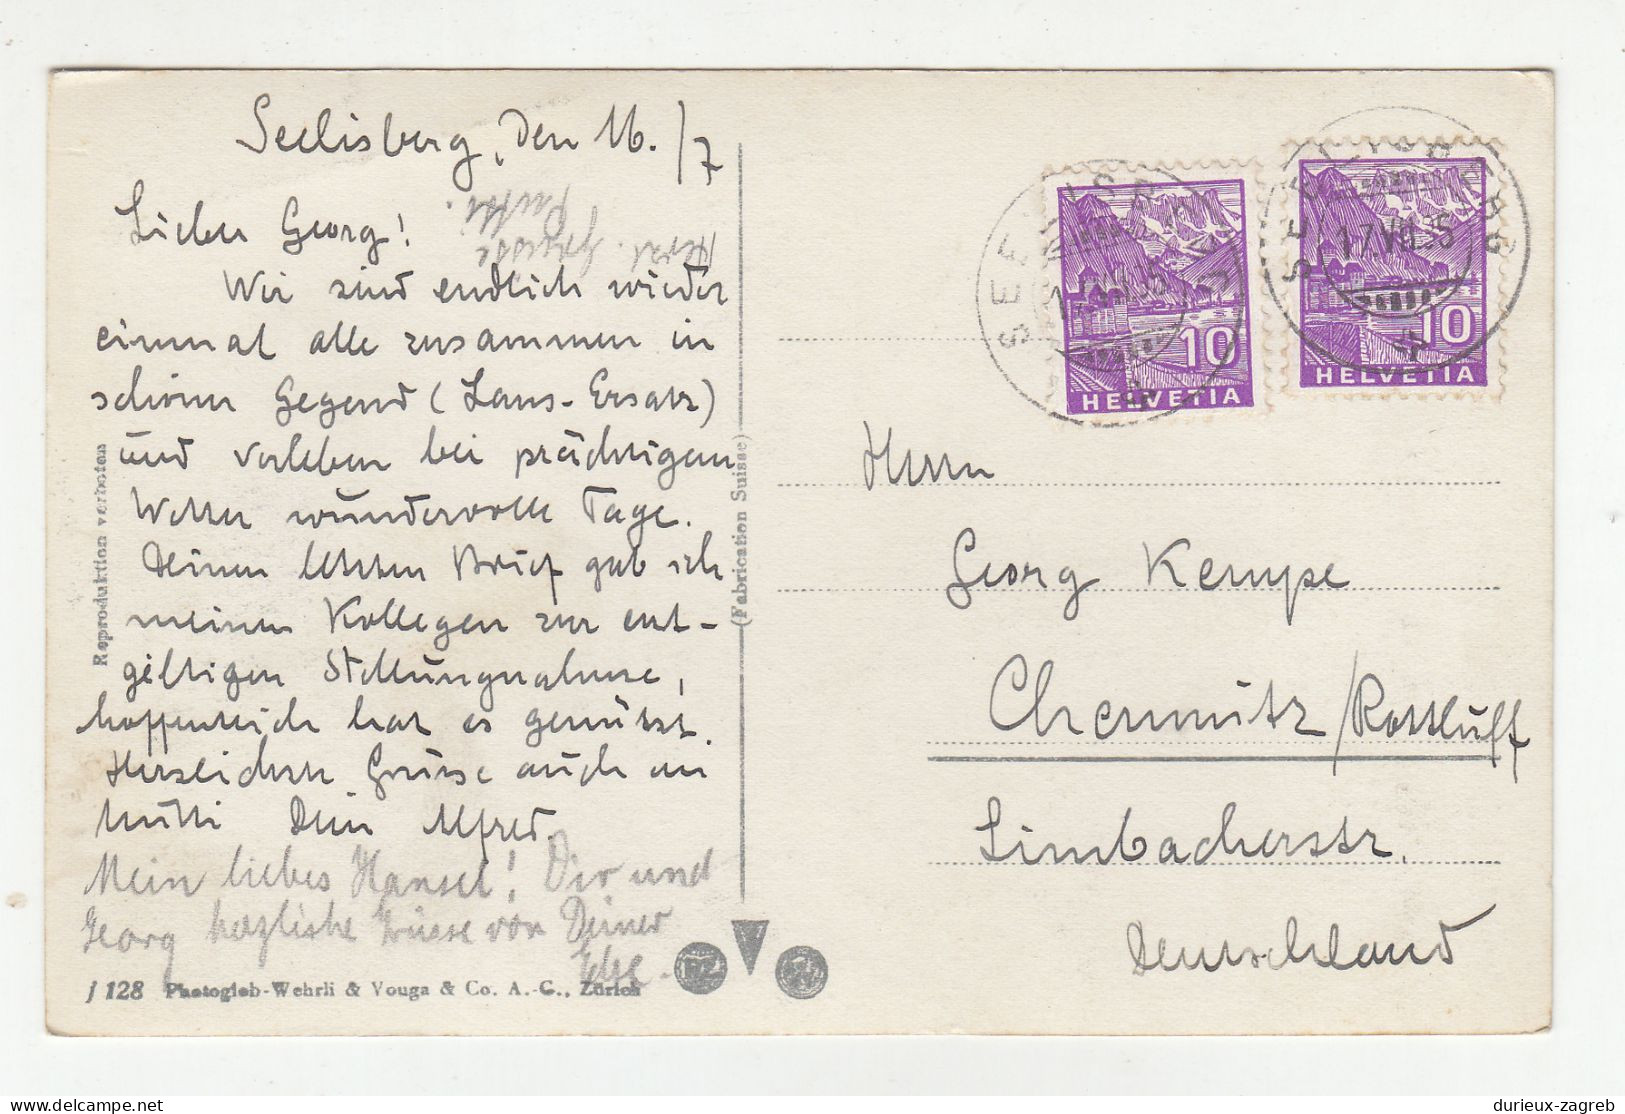 Seelisberg, den 16./7
Herzl. Grüsse
Lieber Georg!
Wir sind endlich wieder
einmal alle zusammen in
schöner Gegend (Lans-Ersatz)
und verleben bei prächtigem
Wetter wundervolle Tage.
Deinen letzten Brief gab ich
meinem Kollegen zur ent-
gültigen Stellungnahme,
hoffentlich hat es genützt.
Herzlichste Grüsse auch an
Mutti Dein Alfred.
Mein liebes Hansel! Dir und
Georg herzliche Grüsse von Deiner
J 128 Photoglob-Wehrli & Vouga & Co. A.-G., Zürich
Reproduktion verboten
(Fabrication Suisse)
PZ
SEELISBERG
17.VII.35
10
HELVETIA
SEELISBERG
17.VII.35
10
HELVETIA
Herrn
Georg Kempe
Chemnitz/Rottluff
Limbacherstr.
Deutschland
durieux-zagreb
delcampe.net